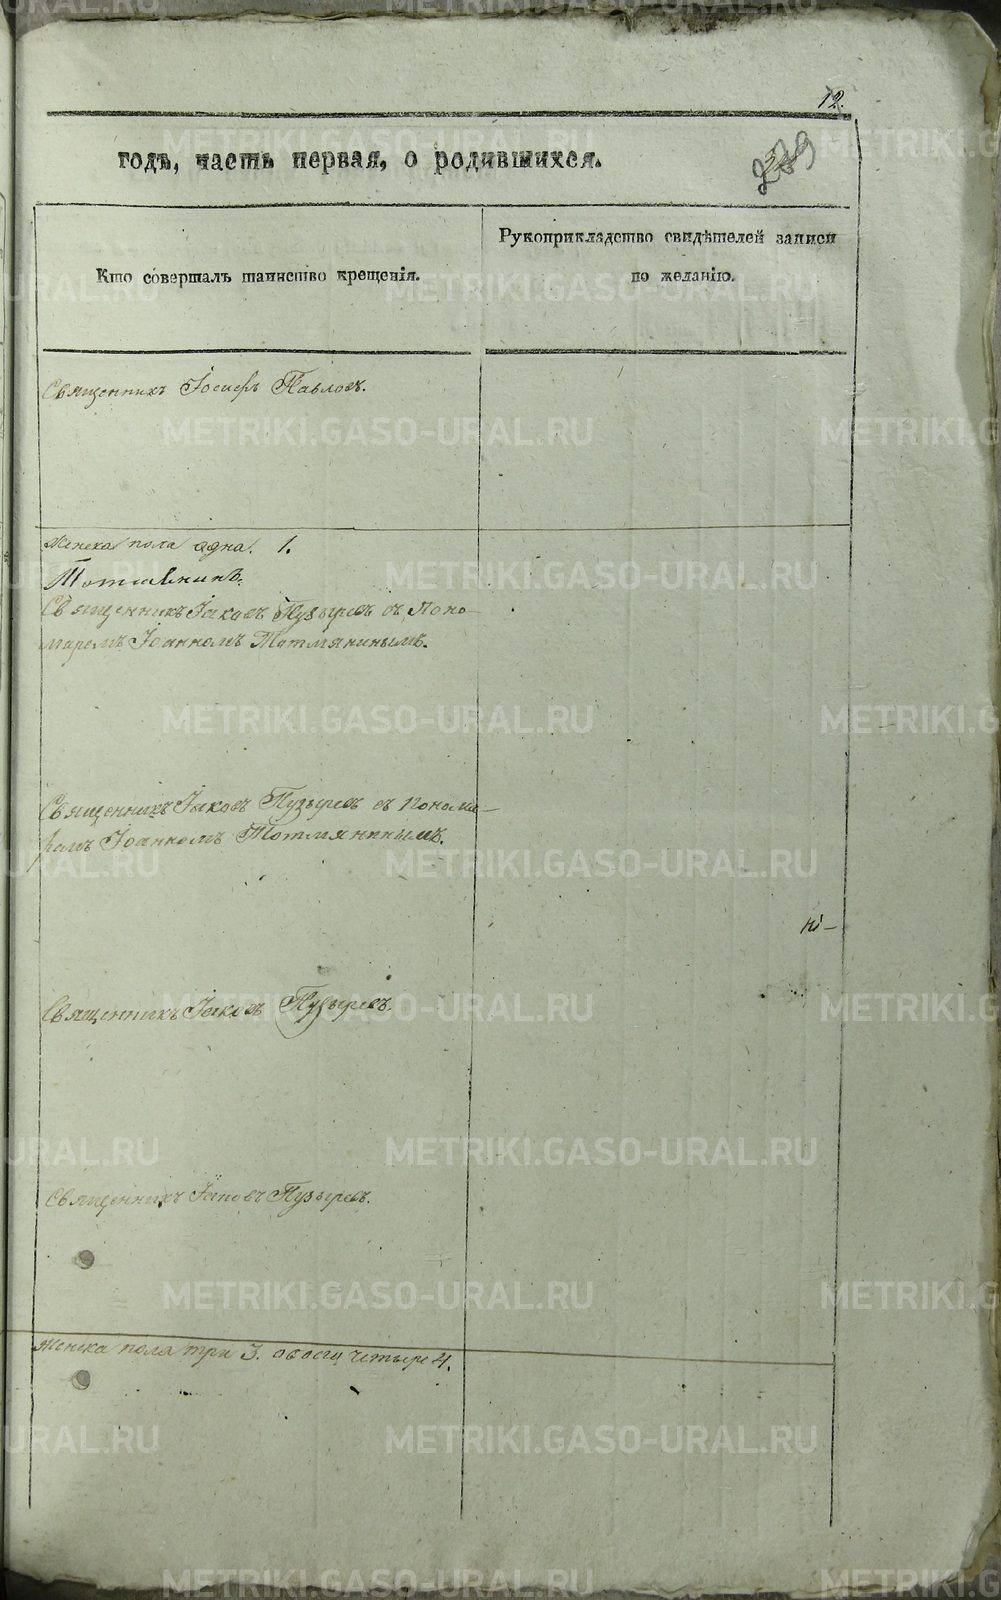 12.
годѣ, часть первая, о родившихся.
Кто совершалъ таинство крещенія.
Рукоприкладство свидѣтелей записи
по желанію.
Священникъ Іосифъ Павловъ.
Женска пола одна. 1.
Священникъ Іаковъ Пузыревъ съ Поно-
маремъ Іоанномъ Тотмянинымъ.
Священникъ Іаковъ Пузыревъ съ Понома-
ремъ Іоанномъ Тотмянинымъ.
Священникъ Іаковъ Пузыревъ.
Священникъ Іаковъ Пузыревъ.
Женска пола три 3. обоего четыре 4.
METRIKI.GASO-URAL.RU